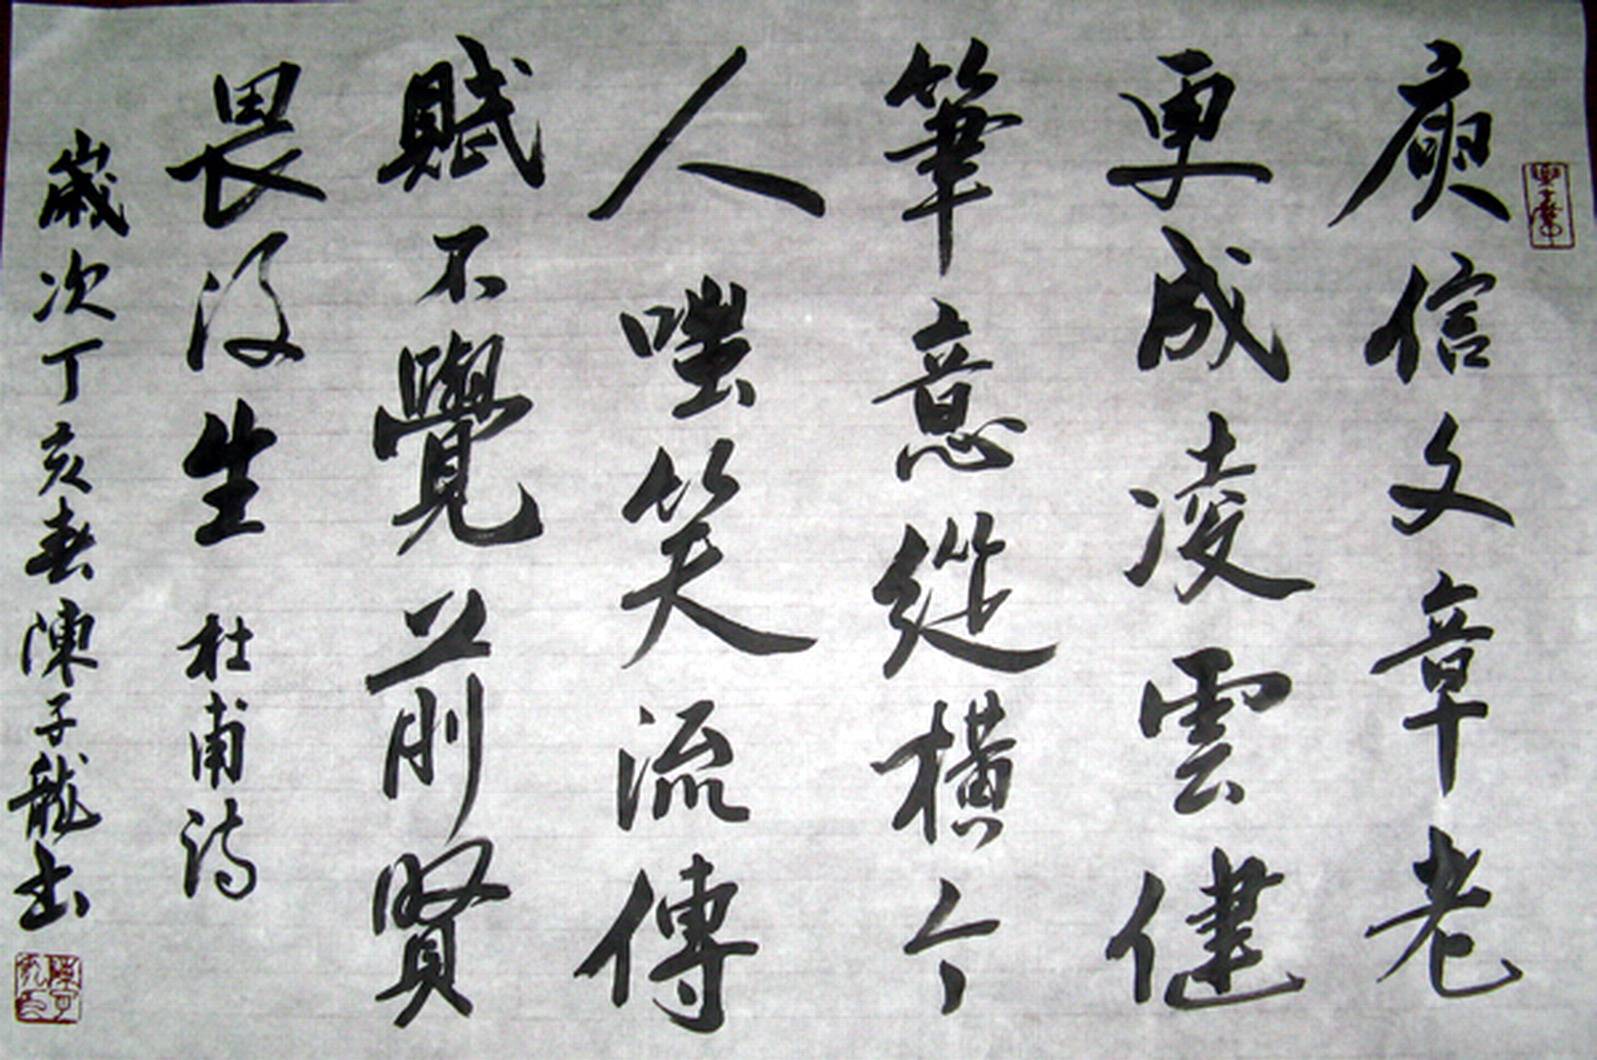 庾信文章老
更成凌雲健
筆意縱橫今
人嗤笑流傳
賦不覺前賢
畏后生 杜甫詩
歲次丁亥春陳子龍書